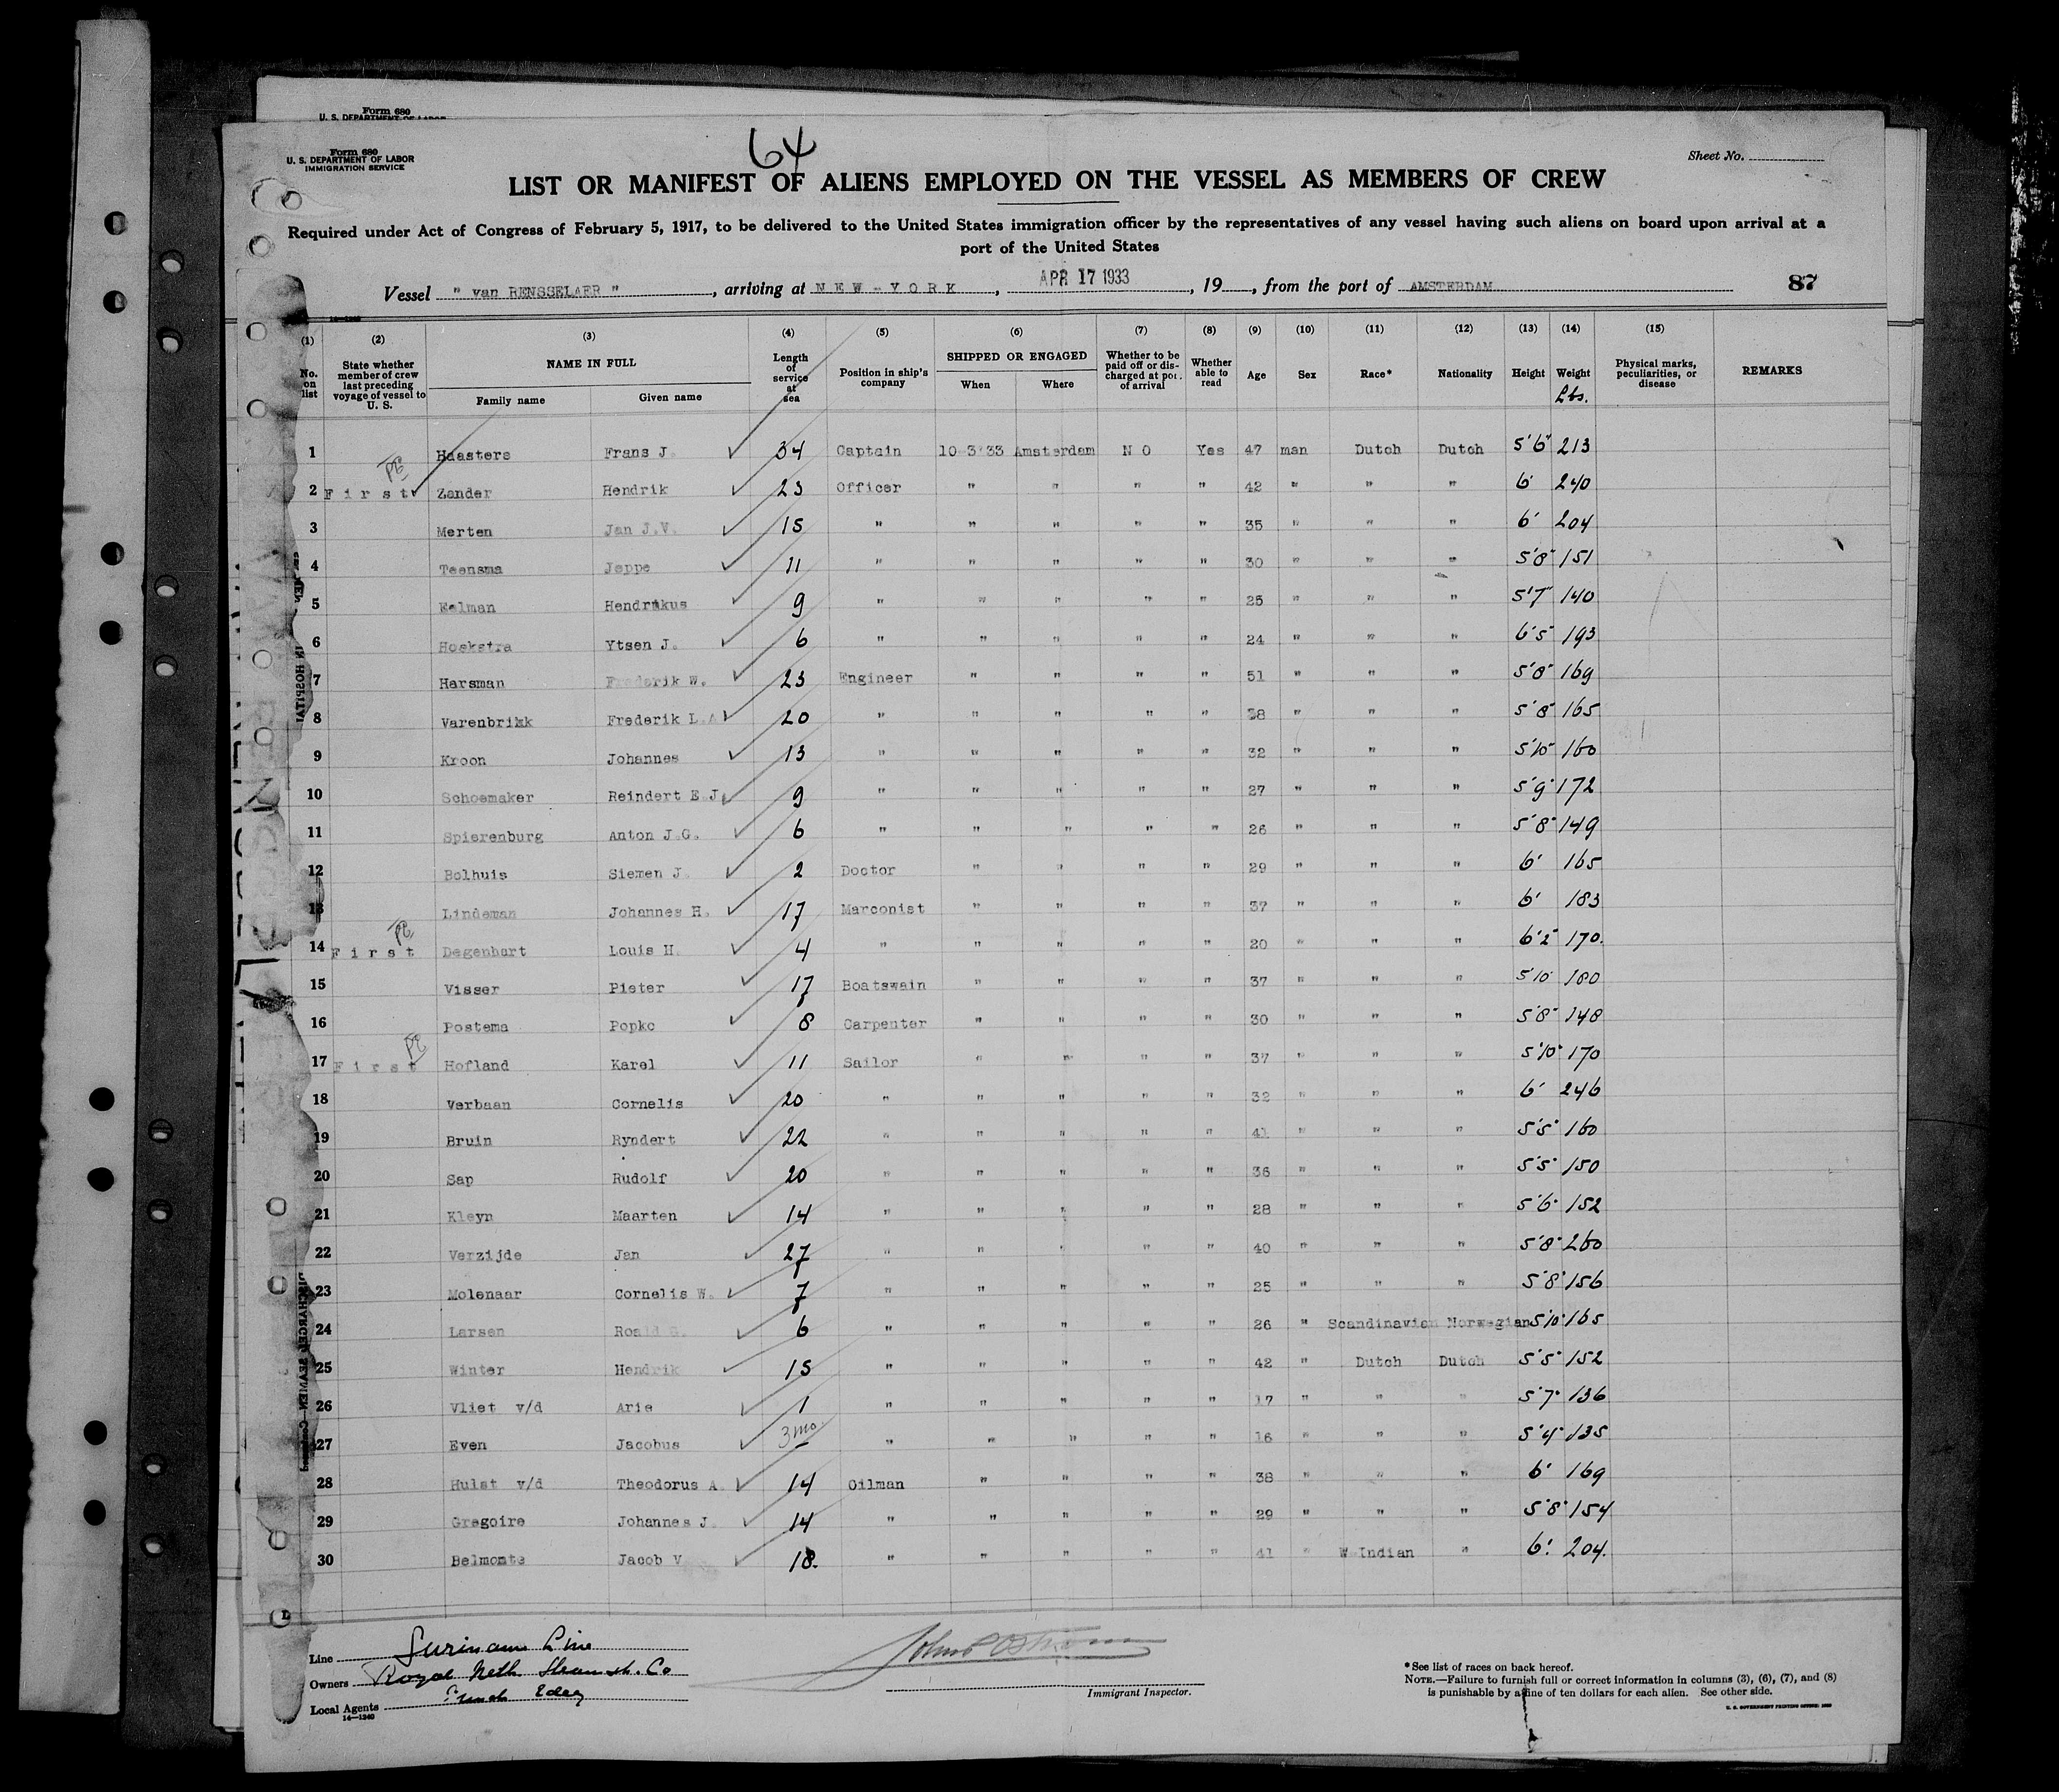 Form 680
U. S. DEPARTMENT OF LABOR
Form 680
U. S. DEPARTMENT OF LABOR
IMMIGRATION SERVICE
64
Sheet No.
LIST OR MANIFEST OF ALIENS EMPLOYED ON THE VESSEL AS MEMBERS OF CREW
Required under Act of Congress of February 5, 1917, to be delivered to the United States immigration officer by the representatives of any vessel having such aliens on board upon arrival at a
port of the United States
Vessel " van RENSSELAER ", arriving at NEW-YORK, APR 17 1933, 19, from the port of AMSTERDAM 87
(1) (2) (3) (4) (5) (6) (7) (8) (9) (10) (11) (12) (13) (14) (15)
No. on list
State whether member of crew last preceding voyage of vessel to U. S.
NAME IN FULL
Family name
Given name
Length of service at sea
Position in ship's company
SHIPPED OR ENGAGED
When
Where
Whether to be paid off or discharged at port of arrival
Whether able to read
Age
Sex
Race*
Nationality
Height
Weight
Lbs.
Physical marks, peculiarities, or disease
REMARKS
1 Haasters Frans J. 34 Captain 10-3'33 Amsterdam NO Yes 47 man Dutch Dutch 5'6" 213
2 First Zander Hendrik 23 Officer " " " " 42 " " " 6' 240
3 Merten Jan J.V. 15 " " " " " 35 " " " 6' 204
4 Teensma Jeppe 11 " " " " " 30 " " " 5'8" 151
5 Eelman Hendrikus 9 " " " " " 25 " " " 5'7" 140
6 Hoekstra Ytsen J. 6 " " " " " 24 " " " 6'5" 193
7 Harsman Frederik W. 23 Engineer " " " " 51 " " " 5'8" 169
8 Varenbrikk Frederik L.A 20 " " " " " 38 " " " 5'8" 165
9 Kroon Johannes 13 " " " " " 32 " " " 5'10" 160
10 Schoemaker Reindert E.J. 9 " " " " " 27 " " " 5'9" 172
11 Spierenburg Anton J.G. 6 " " " " " 26 " " " 5'8" 149
12 Bolhuis Siemen J. 2 Doctor " " " " 29 " " " 6' 165
13 Lindeman Johannes H. 17 Marconist " " " " 37 " " " 6' 183
14 First Degenhart Louis H. 4 " " " " " 20 " " " 6'2" 170.
15 Visser Pieter 17 Boatswain " " " " 37 " " " 5'10" 180
16 Postema Popko 8 Carpenter " " " " 30 " " " 5'8" 148
17 First Hofland Karel 11 Sailor " " " " 37 " " " 5'10" 170
18 Verbaan Cornelis 20 " " " " " 32 " " " 6' 246
19 Bruin Ryndert 22 " " " " " 41 " " " 5'5" 160
20 Sap Rudolf 20 " " " " " 36 " " " 5'5" 150
21 Kleyn Maarten 14 " " " " " 28 " " " 5'6" 152
22 Verzijde Jan 27 " " " " " 40 " " " 5'8" 260
23 Molenaar Cornelis W. 7 " " " " " 25 " " " 5'8" 156
24 Larsen Roald G. 6 " " " " " 26 " Scandinavien Norwegian 5'10" 165
25 Winter Hendrik 15 " " " " " 42 " Dutch Dutch 5'5" 152
26 Vliet v/d Arie 1 " " " " " 17 " " " 5'7" 136
27 Even Jacobus 3 mo. " " " " " 16 " " " 5'4" 135
28 Hulst v/d Theodorus A. 14 Oilman " " " " 38 " " " 6' 169
29 Gregoire Johannes J. 14 " " " " " 29 " " " 5'8" 154
30 Belmonte Jacob V 18. " " " " " 41 " W-Indian " 6' 204.
Line Surinam Line
Owners Royal Neth Steamsh. Co
Local Agents Funch Edey
14—1240
Immigrant Inspector.
*See list of races on back hereof.
NOTE.—Failure to furnish full or correct information in columns (3), (6), (7), and (8)
is punishable by a fine of ten dollars for each alien. See other side.